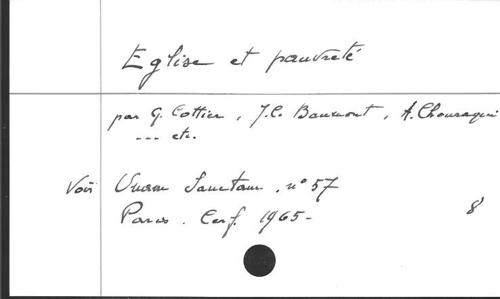 Eglise et pauvreté
par G. Cottier, J.C. Baumont, A. Chouraqui
... etc.
Voir Unam Sanctam, n° 57
Paris. Cerf. 1965-
8°